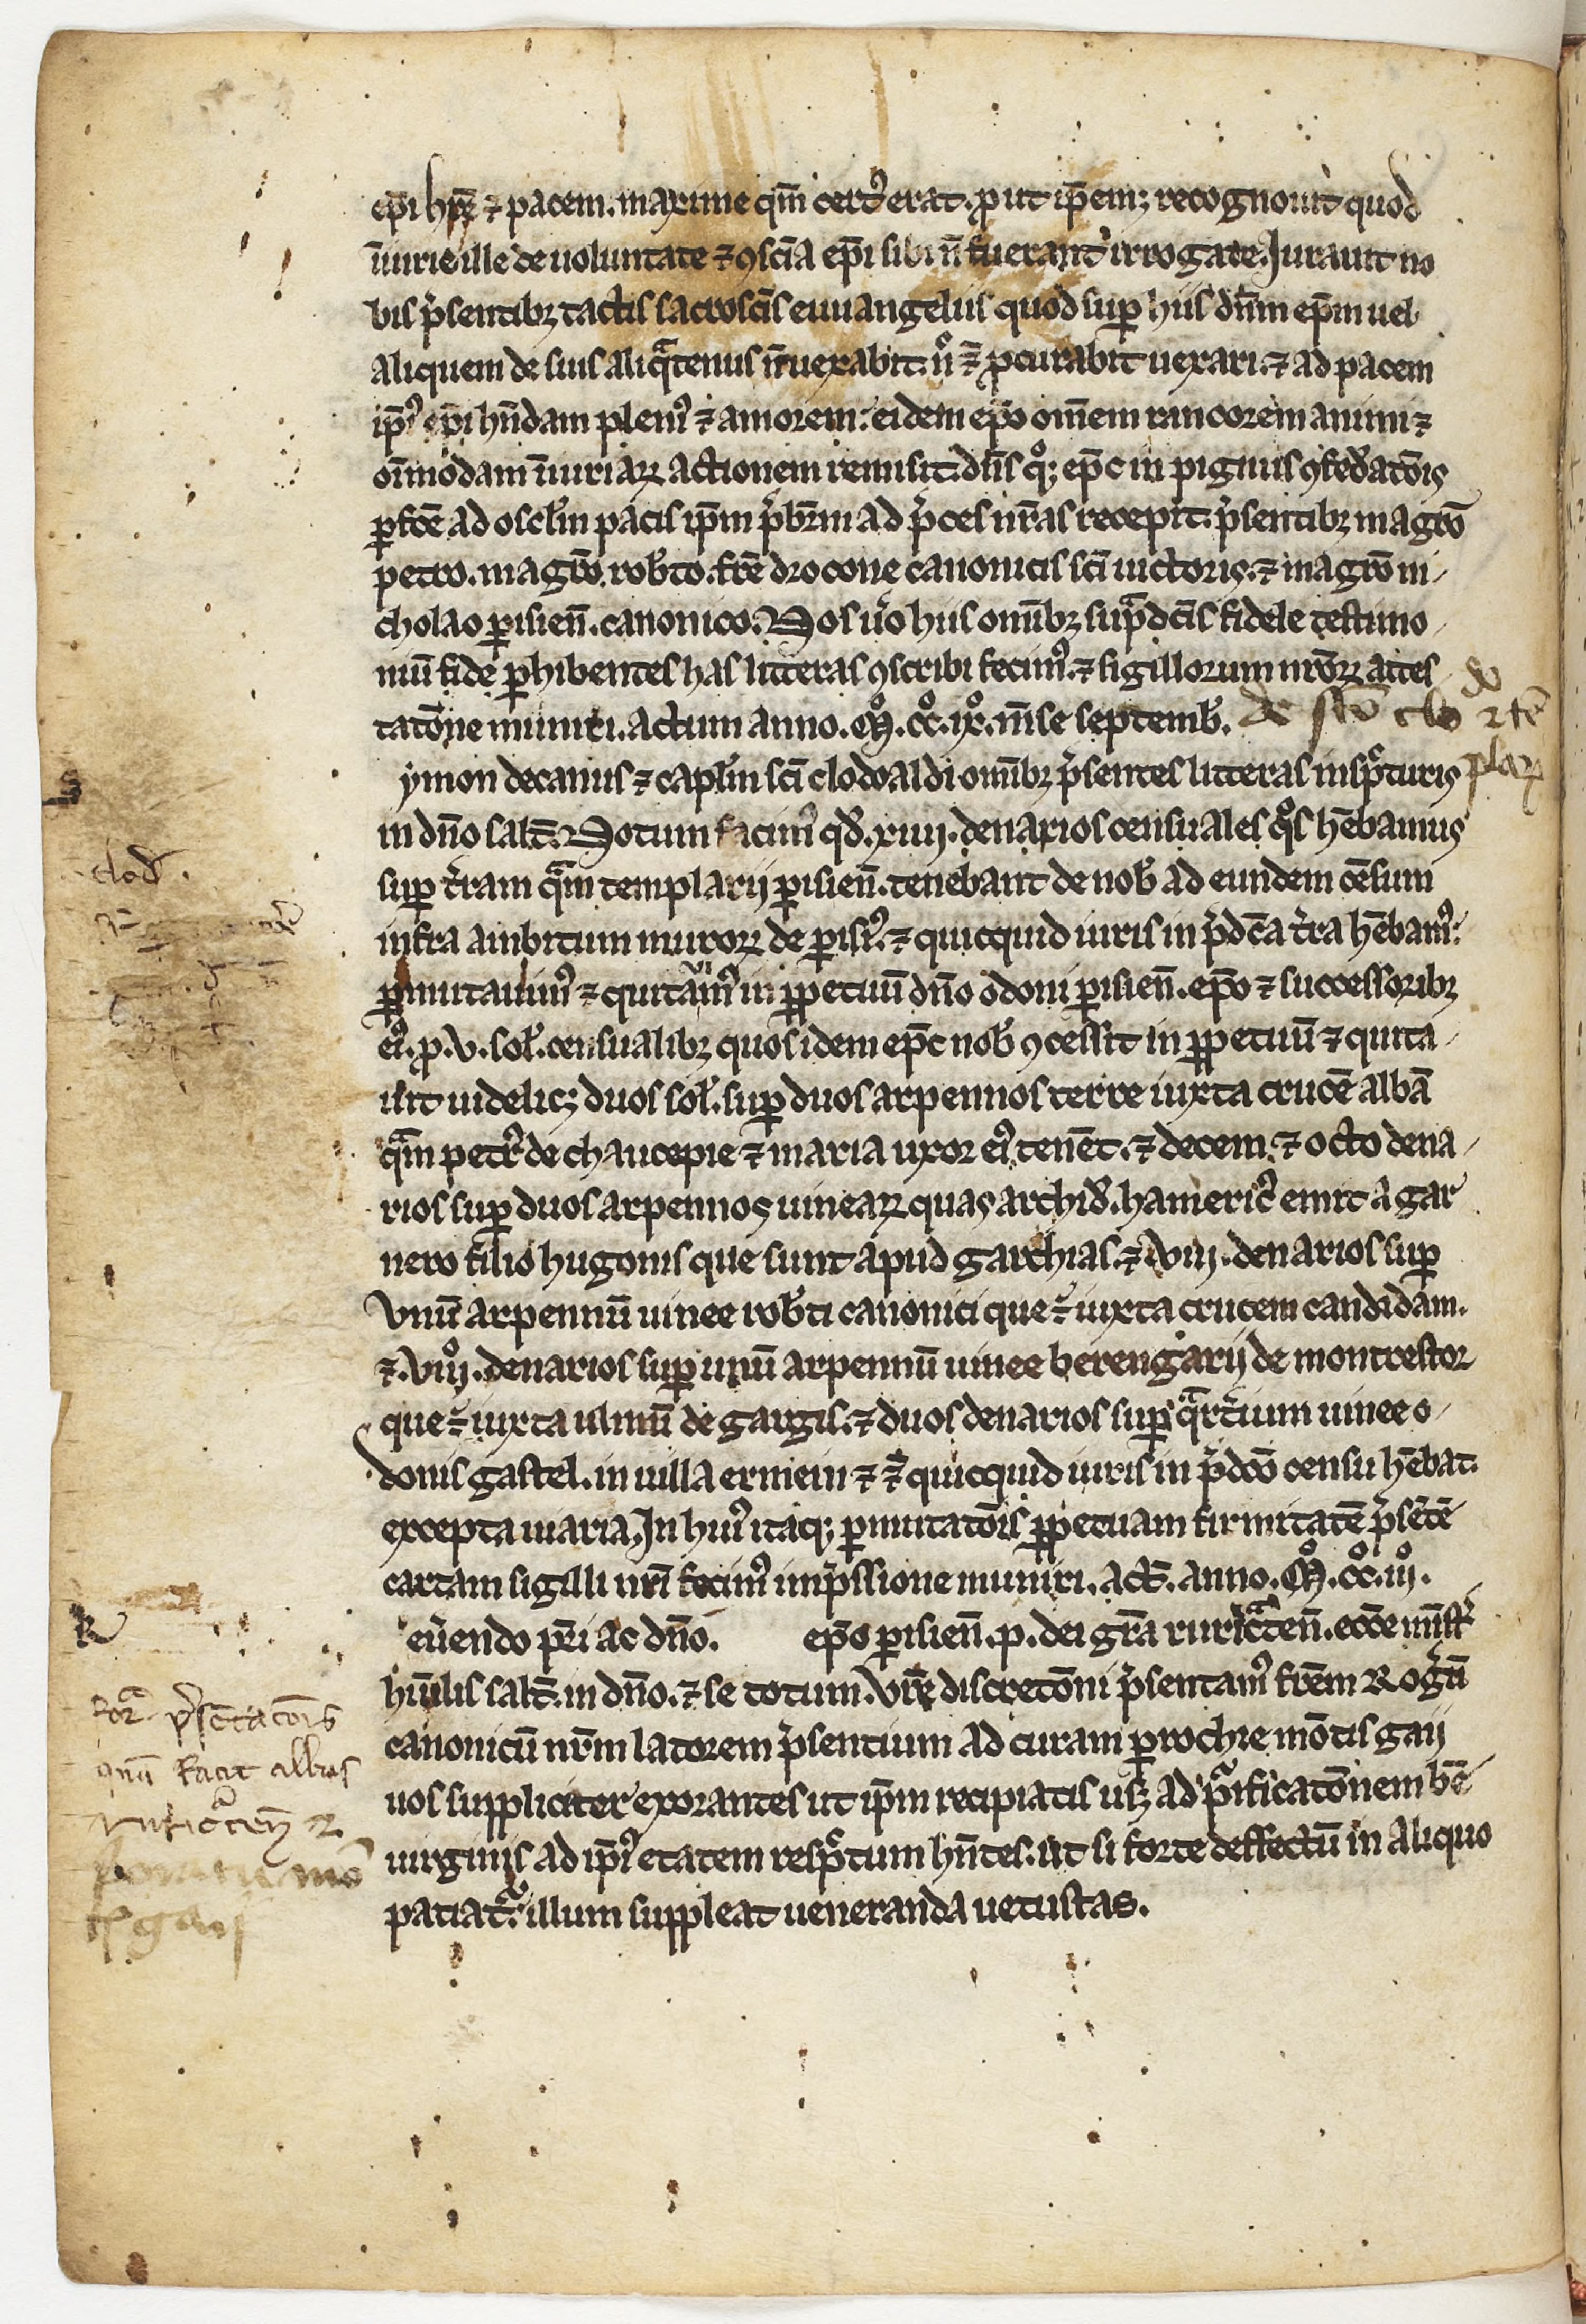 ep̄i hr̄e ⁊ pacem. maxime qm̄ cert᷒ erat. ꝓut ip̄emꝫ recognouit quod
iniurie ille de uoluntate ⁊ ꝯsciā ep̄i sibi n̄ fuerant irrogate. Iurauit no
bis p̄sentibꝫ tactis sacroscīs euuangeliis quod suꝑ hiis dn̄m ep̄m uel
aliquem de suis aliqᵃtenus n̄ uexabit. nᵒ ⁊ꝭ ꝓcurabit uexari. ⁊ ad pacem
ip̄i᷒ ep̄i hn̄dam pleni᷒ ⁊ amorem: eidem ep̄o om̄em rancorem animi ⁊
om̄imodam iniuriaꝝ actionem remisit. dn̄s qᵒꝫ ep̄c in pignus ꝯfed̓atōis
ꝑfc̄e ad oscl̓m pacis ip̄m p̄br̄m ad p̄ces nr̄as recepit. p̄sentibꝫ magrō
petro. magrō rob̓to. frē drocone canonicis scī uictoris. ⁊ magrō ni-
cholao ꝑisien̄. canonico. Nos u̓o hiis omībꝫ supᵃdcīs fidele testimo-
niū fide ꝑhibentes has litteras ꝯscribi fecim᷒. ⁊ sigillorum nr̄oꝝ attes
tatōne muniri. actum anno. Mᵒ. ccᵒ. ixᵒ. mēse septemb̓. de sco clo
ymon decanus ⁊ capl̓m scī clodoaldi omībꝫ p̄sentes litteras inspecturis
in dn̄o salt̄. Notum facim᷒ qd̓. xiiij. denarios censuales qᵒs hēbamus
suꝑ t̓ram qᵃm templarij ꝑisien̄. tenebant de nob̓ ad eundem cēsum
infra ambitum muroꝝ de ꝑisi᷒. ⁊ quicquid iuris in p̄dcā t̓ra hēbam᷒:
ꝑmutauim᷒ ⁊ quitauim᷒ in ꝑpetuū dn̄o odoni ꝑisien̄. ep̄o ⁊ successoribꝫ
ei᷒. ꝓ. v. sol̓. censualibꝫ quos idem ep̄c nob̓ ꝯcessit in ꝑpetuū ⁊ quita-
uit uidelicꝫ duos sol̓. suꝑ duos arpennos terre iuxta crucē albā
qᵃm petr᷒ de chaucepie ⁊ maria uxor ei᷒ tenēt. ⁊ decem ⁊ octo dena-
rios suꝑ duos arpennos uineaꝝ quas archid̓. hameric᷒ emit a gar
nero filio hugonis que sunt apud garchias. ⁊ viij. denarios suꝑ
vnū arpennū uinee rob̓ti canonici que ē iuxta crucem candidam.
⁊. viijᵒ. denarios suꝑ unū arpennū uinee berengarij de montrestor
que ē iuxta ulmū de gaugis. ⁊ duos denarios suꝑ qᵃrt̓ium uinee o-
donis gastel. in uilla ermein ⁊ ⁊ꝭ quicquid iuris in p̄dcō censu hēbat.
excepta uiaria. In hui᷒ itaqꝫ ꝑmutatōis ꝑpetuam firmitatē p̄sētē
cartam sigilli nr̄i fecim᷒ imp̄ssione muniri. act̄. anno. Mᵒ. ccᵒ. iijᵒ.
eu̓endo pr̄i ac dn̄o. ep̄o ꝑisien̄. p. dei grā ruricᵃten̄. ecc̄e mīst̓
hūilis salt̄. in dn̄o. ⁊ se totum. Vr̄e discretōni p̄sentam᷒ frēm Rog̓ū
canonicū nr̄m latorem p̄sentium ad curam ꝑrochie mōtis gaij
uos suppliciter exorantes ut ip̄m recipiatis usqꝫ ad pᵘificatōnem bē
uirginis ad ip̄i᷒ etatem respectum hn̄tes. ut si forte deffectū in aliquo
patiat᷑. illum suppleat ueneranda uetustas.
S
clod̓.
R
forᵃ p̄sētatōis
quū facit abbas
ruricᵃten̄
mō
gaij